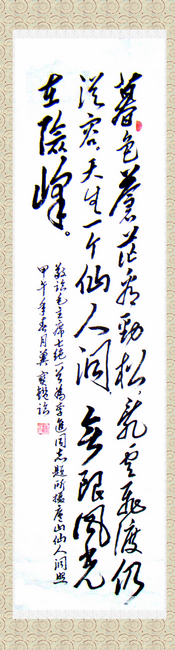 暮色蒼茫看勁松,亂云飛渡仍
從容。天生一个仙人洞,無限風光
在險峰。
敬錄毛主席七絕一首為李進同志題所攝廬山仙人洞照
甲午年春月